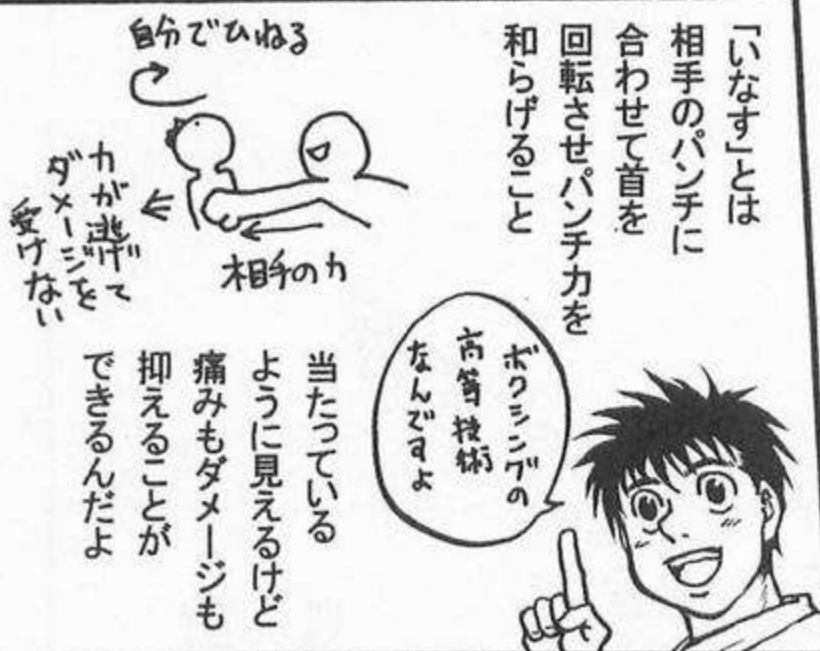 「いなす」とは
相手のパンチに
合わせて首を
回転させパンチ力を
和らげること
自分でひねる
相手の力
力が逃げて
ダメージを
受けない
ボクシングの
高等技術
なんですよ
当たっている
ように見えるけど
痛みもダメージも
抑えることが
できるんだよ